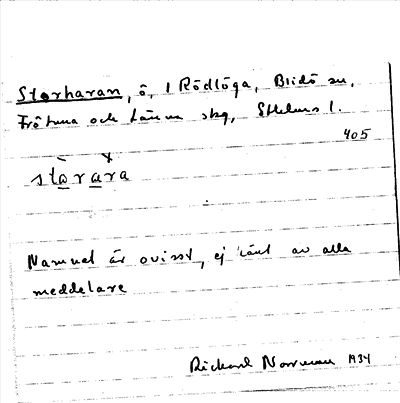 Storharan, ö, i Rödlöga, Blidö sn,
Frötuna och Länna skg, Sthlms l.
405
stàrǎra
Namnet är ovisst, ej känt av alla
meddelare
Rickard Norrman 1934